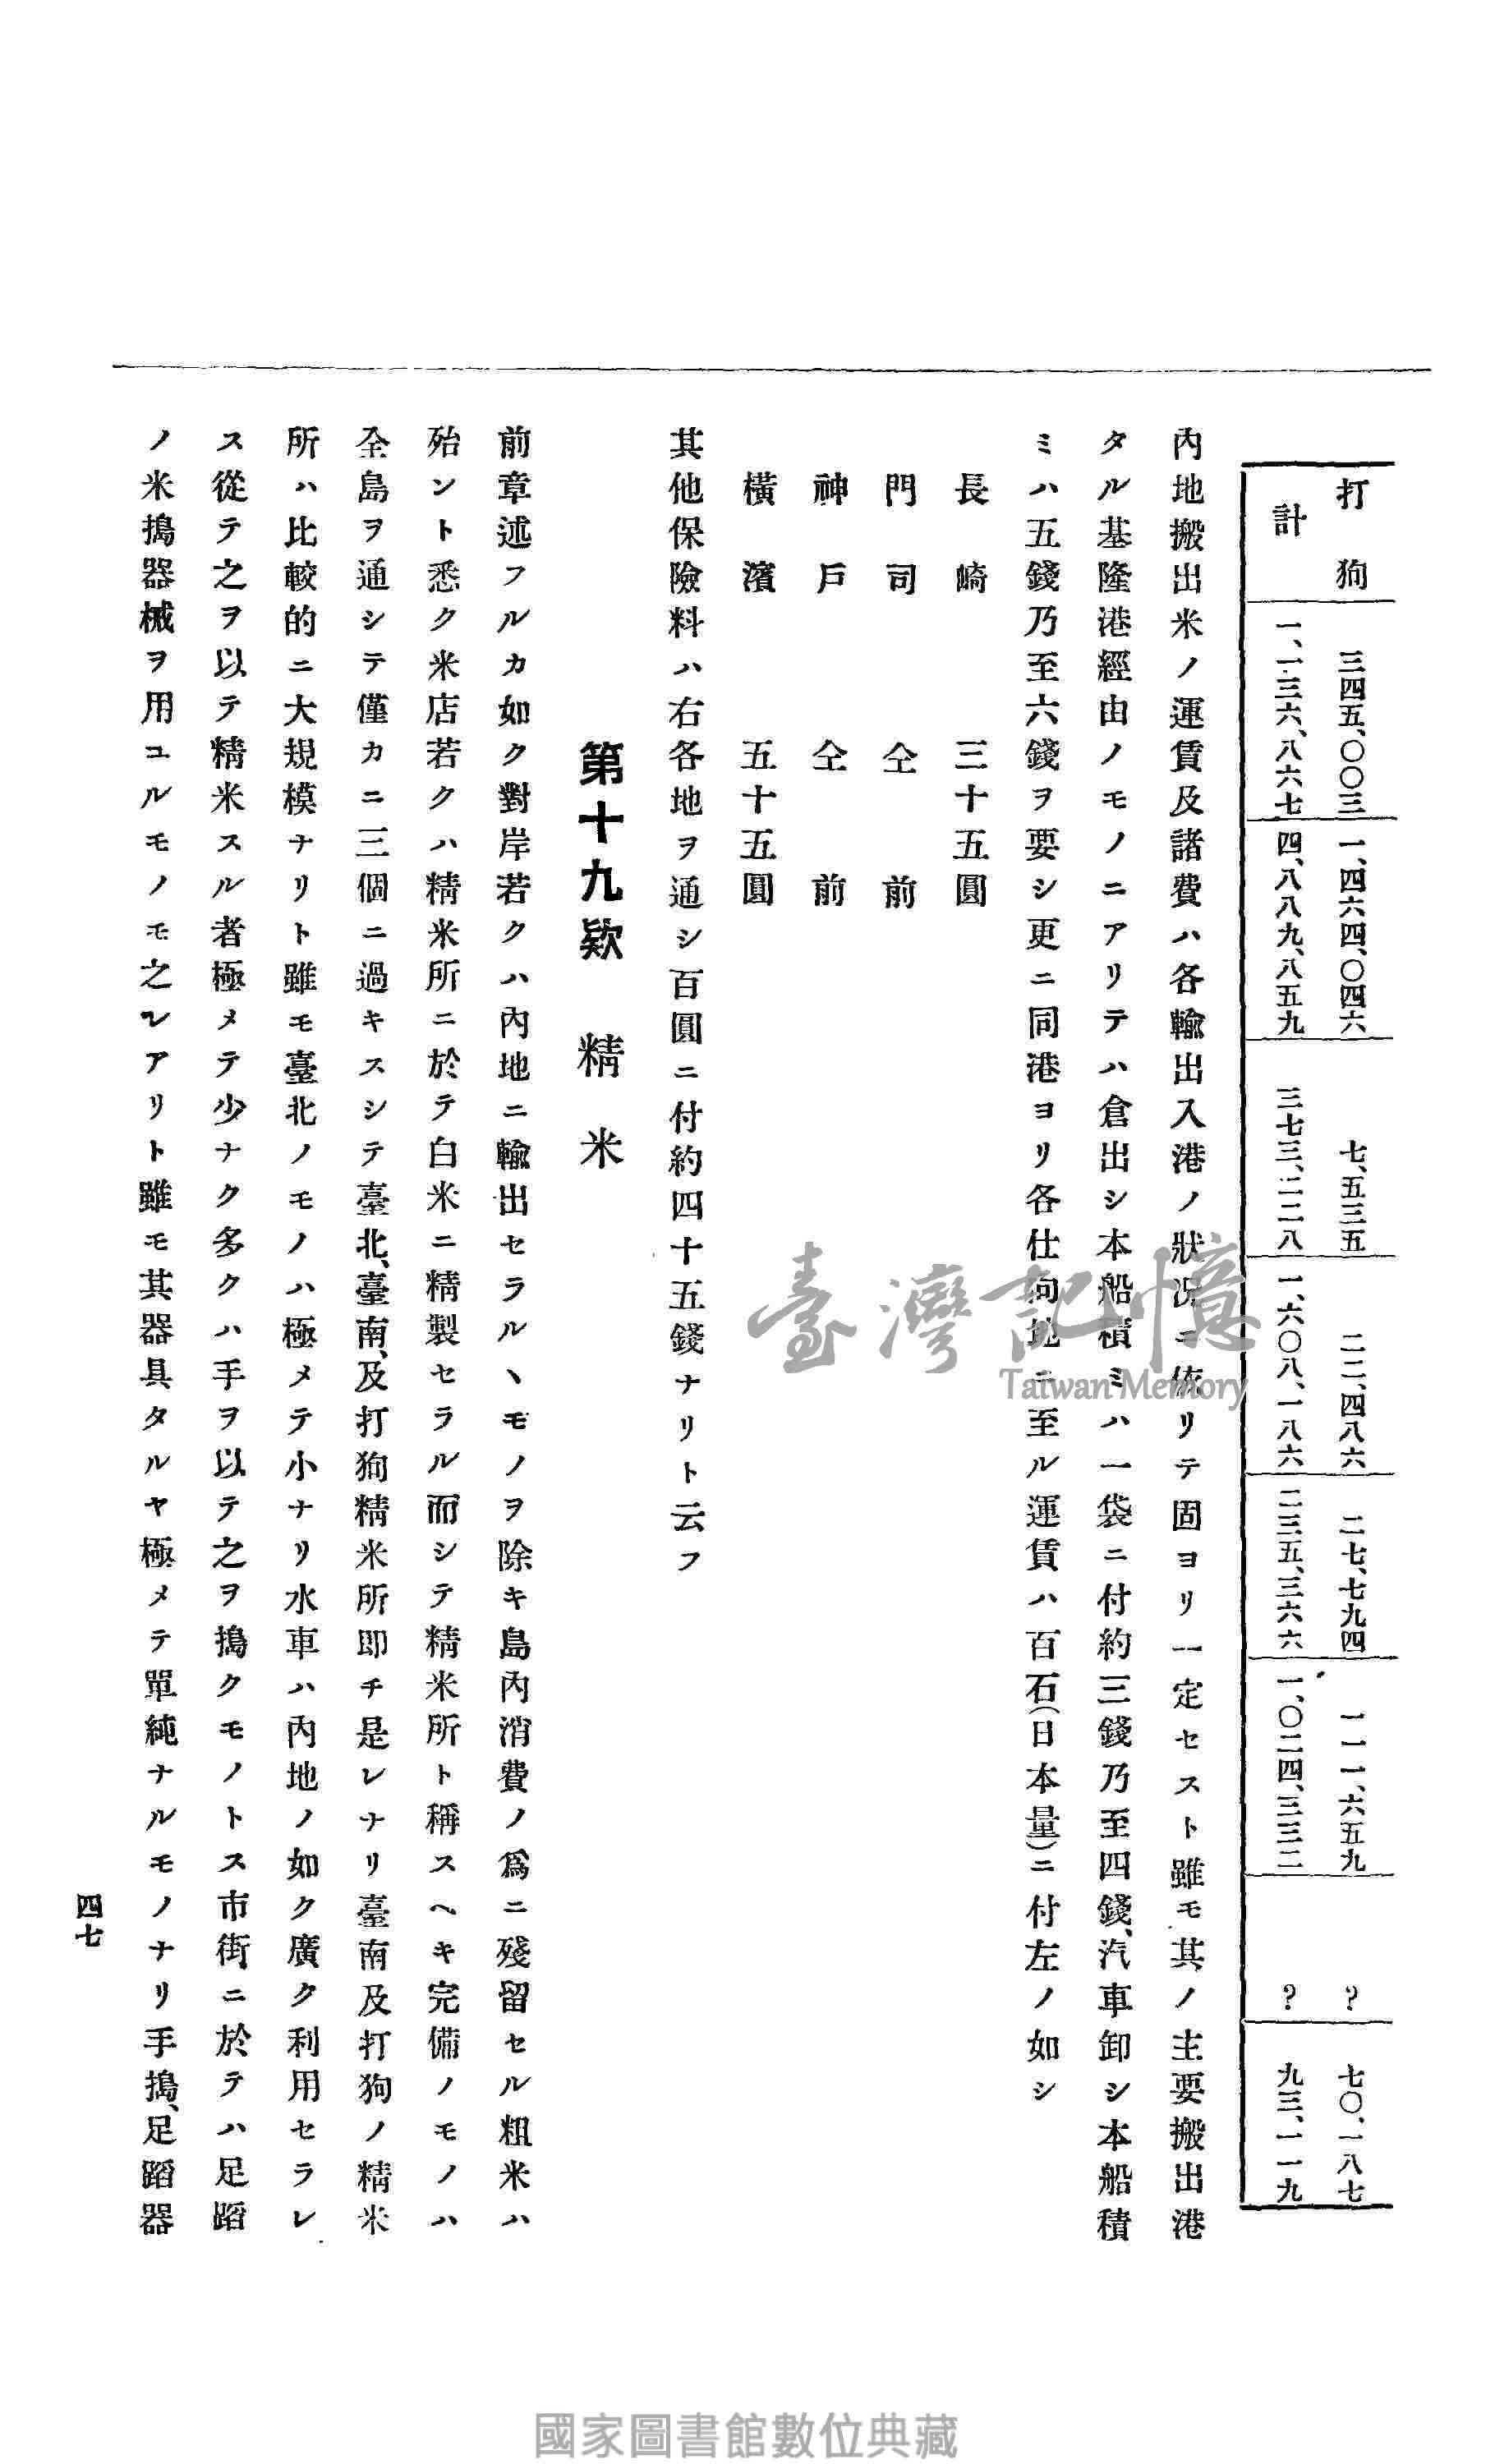 打狗 三四五、〇〇三 一、四六四、〇四六 七、五三五 二二、四八六 二七、七九四 一一一、六五九 ? 七〇、一八七
計 一、一三六、八六七 四、八八九、八五九 三七三、二二八 一、六〇八、一八六 二三五、三六六 一、〇二四、三三二 ? 九三、一一九
內地搬出米ノ運賃及諸費ハ各輸出入港ノ狀況ニ依リテ固ヨリ一定セスト雖モ其ノ主要搬出港
タル基隆港經由ノモノニアリテハ倉出シ本船積ミハ一袋ニ付約三錢乃至四錢、汽車卸シ本船積
ミハ五錢乃至六錢ヲ要シ更ニ同港ヨリ各仕向地ニ至ル運賃ハ百石(日本量)ニ付左ノ如シ
長崎 三十五圓
門司 仝前
神戶 仝前
橫濱 五十五圓
其他保險料ハ右各地ヲ通シ百圓ニ付約四十五錢ナリト云フ
第十九欵 精米
前章述フルカ如ク對岸若クハ內地ニ輸出セラルヽモノヲ除キ島內消費ノ爲ニ殘留セル粗米ハ
殆ント悉ク米店若クハ精米所ニ於テ白米ニ精製セラル而シテ精米所ト稱スヘキ完備ノモノハ
全島ヲ通シテ僅カニ三個ニ過キスシテ臺北、臺南、及打狗精米所卽チ是レナリ臺南及打狗ノ精米
所ハ比較的ニ大規模ナリト雖モ臺北ノモノハ極メテ小ナリ水車ハ內地ノ如ク廣ク利用セラレ
ス從テ之ヲ以テ精米スル者極メテ少ナク多クハ手ヲ以テ之ヲ搗クモノトス市街ニ於テハ足蹈
ノ米搗器械ヲ用ユルモノモ之レアリト雖モ其器具タルヤ極メテ單純ナルモノナリ手搗、足蹈器
四七
臺灣記憶
Taiwan Memory
國家圖書館數位典藏